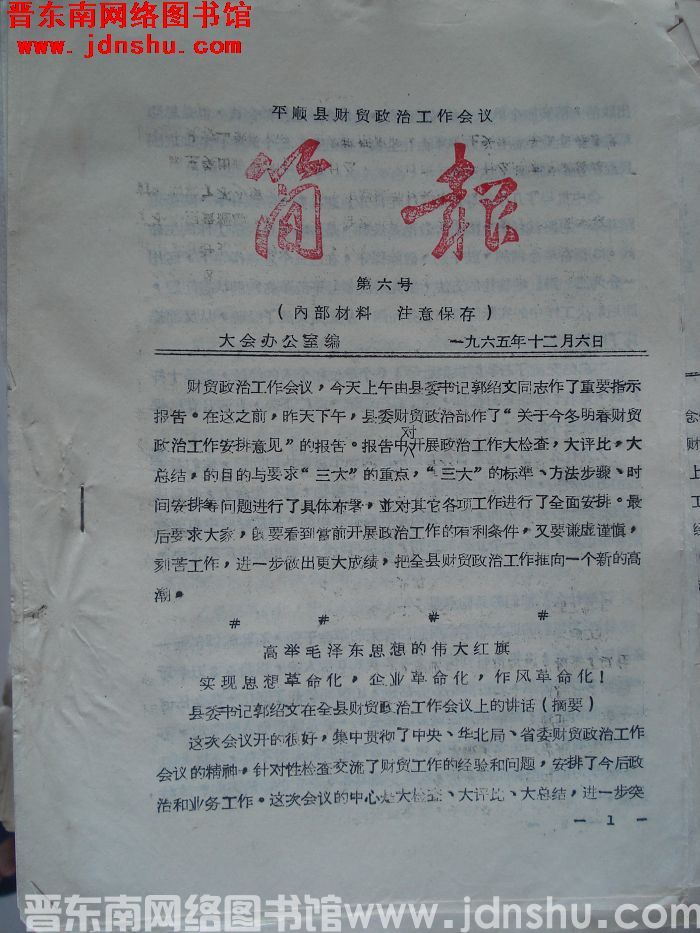 晋东南网络图书馆
www.jdnshu.com
平顺县财贸政治工作会议
简报
第六号
（内部材料　注意保存）
大会办公室编　一九六五年十二月六日
财贸政治工作会议，今天上午由县委书记郭绍文同志作了重要指示
报告。在这之前，昨天下午，县委财贸政治部作了“关于今冬明春财贸
政治工作安排意见”的报告。报告中对开展政治工作大检查，大评比，大
总结，的目的与要求“三大”的重点，“三大”的标准、方法步骤、时
间安排等问题进行了具体布署，並对其它各项工作进行了全面安排。最
后要求大家，既要看到当前开展政治工作的有利条件，又要谦虚谨慎，
刻苦工作，进一步做出更大成绩，把全县财贸政治工作推向一个新的高
潮。
#　#　#　#
高举毛泽东思想的伟大红旗
实现思想革命化，企业革命化，作风革命化！
县委书记郭绍文在全县财贸政治工作会议上的讲话（摘要）
这次会议开的很好，集中贯彻了中央、华北局、省委财贸政治工作
会议的精神，针对性检查交流了财贸工作的经验和问题，安排了今后政
治和业务工作。这次会议的中心是大检查、大评比、大总结，进一步突
— 1 —
晋东南网络图书馆 www.jdnshu.com